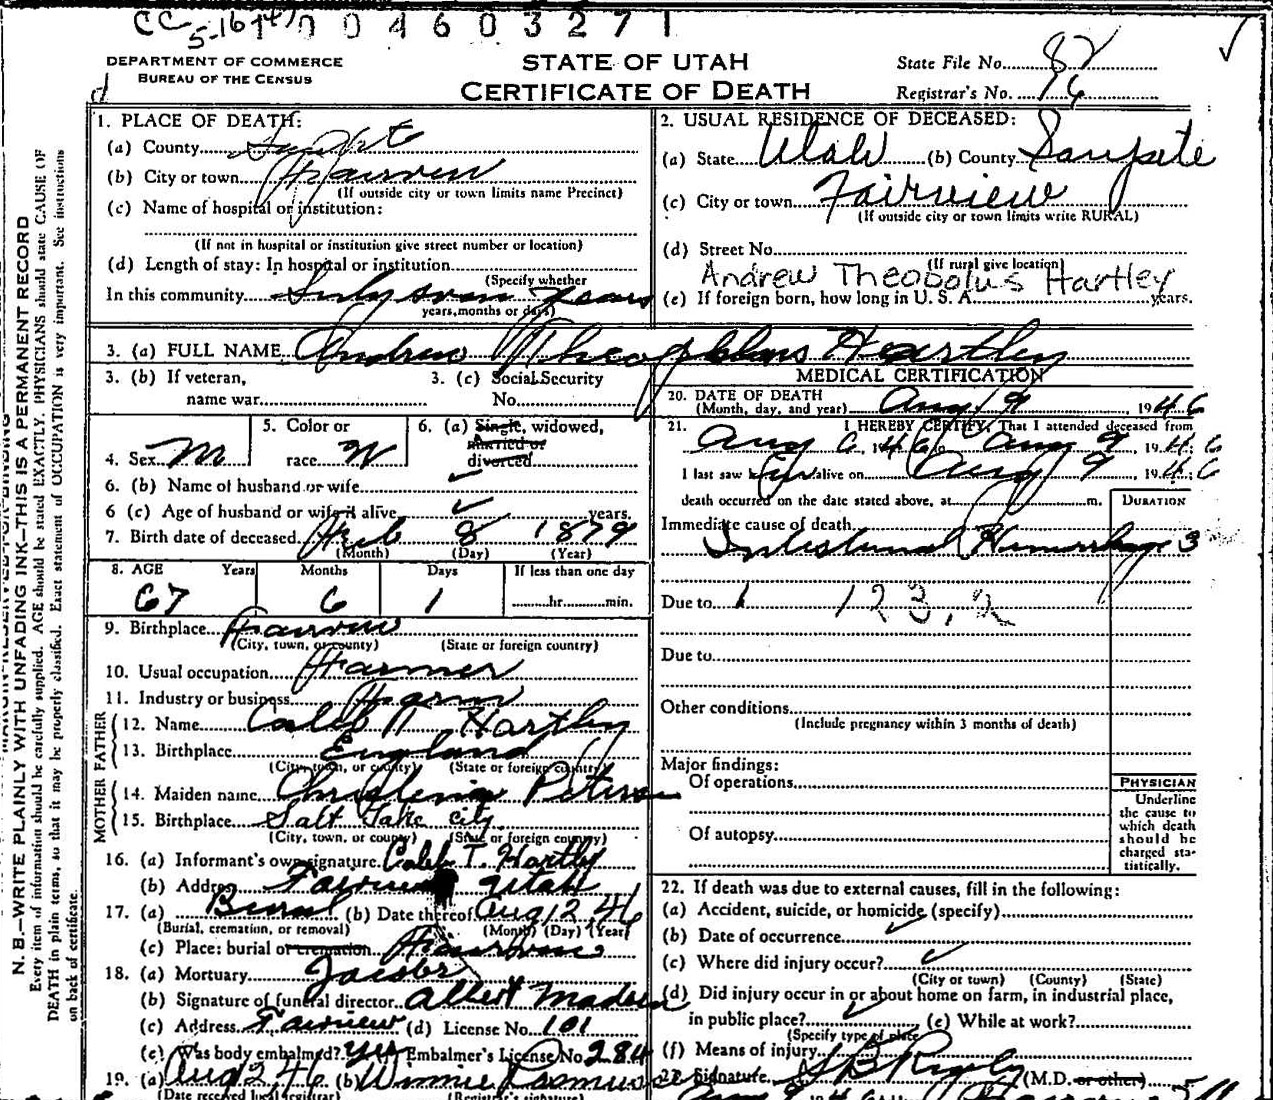 CC 5-16-47 0 0 4 6 0 3 2 7 1
DEPARTMENT OF COMMERCE
BUREAU OF THE CENSUS
STATE OF UTAH
CERTIFICATE OF DEATH
State File No. 82
Registrar's No. 16
N. B.—WRITE PLAINLY WITH UNFADING INK—THIS IS A PERMANENT RECORD
Every item of information should be carefully supplied. AGE should be stated EXACTLY. PHYSICIANS should state CAUSE OF
DEATH in plain terms, so that it may be properly classified. Exact statement of OCCUPATION is very important. See instructions
on back of certificate.
1. PLACE OF DEATH:
(a) County Sanpete
(b) City or town Fairview
(If outside city or town limits name Precinct)
(c) Name of hospital or institution:
(If not in hospital or institution give street number or location)
(d) Length of stay: In hospital or institution
(Specify whether
In this community Sixty seven years
years, months or days)
2. USUAL RESIDENCE OF DECEASED:
(a) State Utah (b) County Sanpete
(c) City or town Fairview
(If outside city or town limits write RURAL)
(d) Street No.
(If rural give location)
Andrew Theobolus Hartley
(e) If foreign born, how long in U. S. A. years.
3. (a) FULL NAME Andrew Theopholus Hartley
3. (b) If veteran,
name war
3. (c) Social Security
No.
4. Sex M
5. Color or
race W
6. (a) Single, widowed,
married or
divorced
6. (b) Name of husband or wife
6 (c) Age of husband or wife if alive years.
7. Birth date of deceased Feb 8 1879
(Month) (Day) (Year)
8. AGE Years Months Days If less than one day
67 6 1 hr. min.
9. Birthplace Fairview
(City, town, or county) (State or foreign country)
10. Usual occupation Farmer
11. Industry or business Farm
FATHER
12. Name Caleb Hartley
13. Birthplace England
(City, town, or county) (State or foreign country)
MOTHER
14. Maiden name Petersen
15. Birthplace Salt Lake City
(City, town, or county) (State or foreign country)
16. (a) Informant's own signature Caleb T. Hartley
(b) Address Fairview Utah
17. (a) Burial (b) Date thereof Aug 12 46
(Burial, cremation, or removal) (Month) (Day) (Year)
(c) Place: burial or cremation Fairview
18. (a) Mortuary Jacobs
(b) Signature of funeral director Albert Madsen
(c) Address Fairview (d) License No. 101
(e) Was body embalmed? Yes Embalmer's License No. 284
19. (a) Aug 12 46 (b) Winnie Rasmussen
(Date received local registrar) (Registrar's signature)
MEDICAL CERTIFICATION
20. DATE OF DEATH
(Month, day, and year) Aug 9 1946
21. I HEREBY CERTIFY, That I attended deceased from
Aug 6, 1946 Aug 9, 1946
I last saw alive on Aug 9 1946
death occurred on the date stated above, at m.
DURATION
Immediate cause of death
Intestinal Hemorrhage 3
Due to 1 123.2
Due to
Other conditions
(Include pregnancy within 3 months of death)
Major findings:
Of operations
Of autopsy
PHYSICIAN
Underline
the cause to
which death
should be
charged sta-
tistically.
22. If death was due to external causes, fill in the following:
(a) Accident, suicide, or homicide (specify)
(b) Date of occurrence
(c) Where did injury occur?
(City or town) (County) (State)
(d) Did injury occur in or about home on farm, in industrial place,
in public place? (e) While at work?
(Specify type of place
(f) Means of injury
23. Signature S B Rigby (M.D. or other)